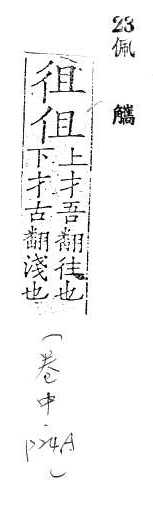 23佩觿
徂伹
上才吾翻往也
下才古翻淺也
(卷中·
P24A)